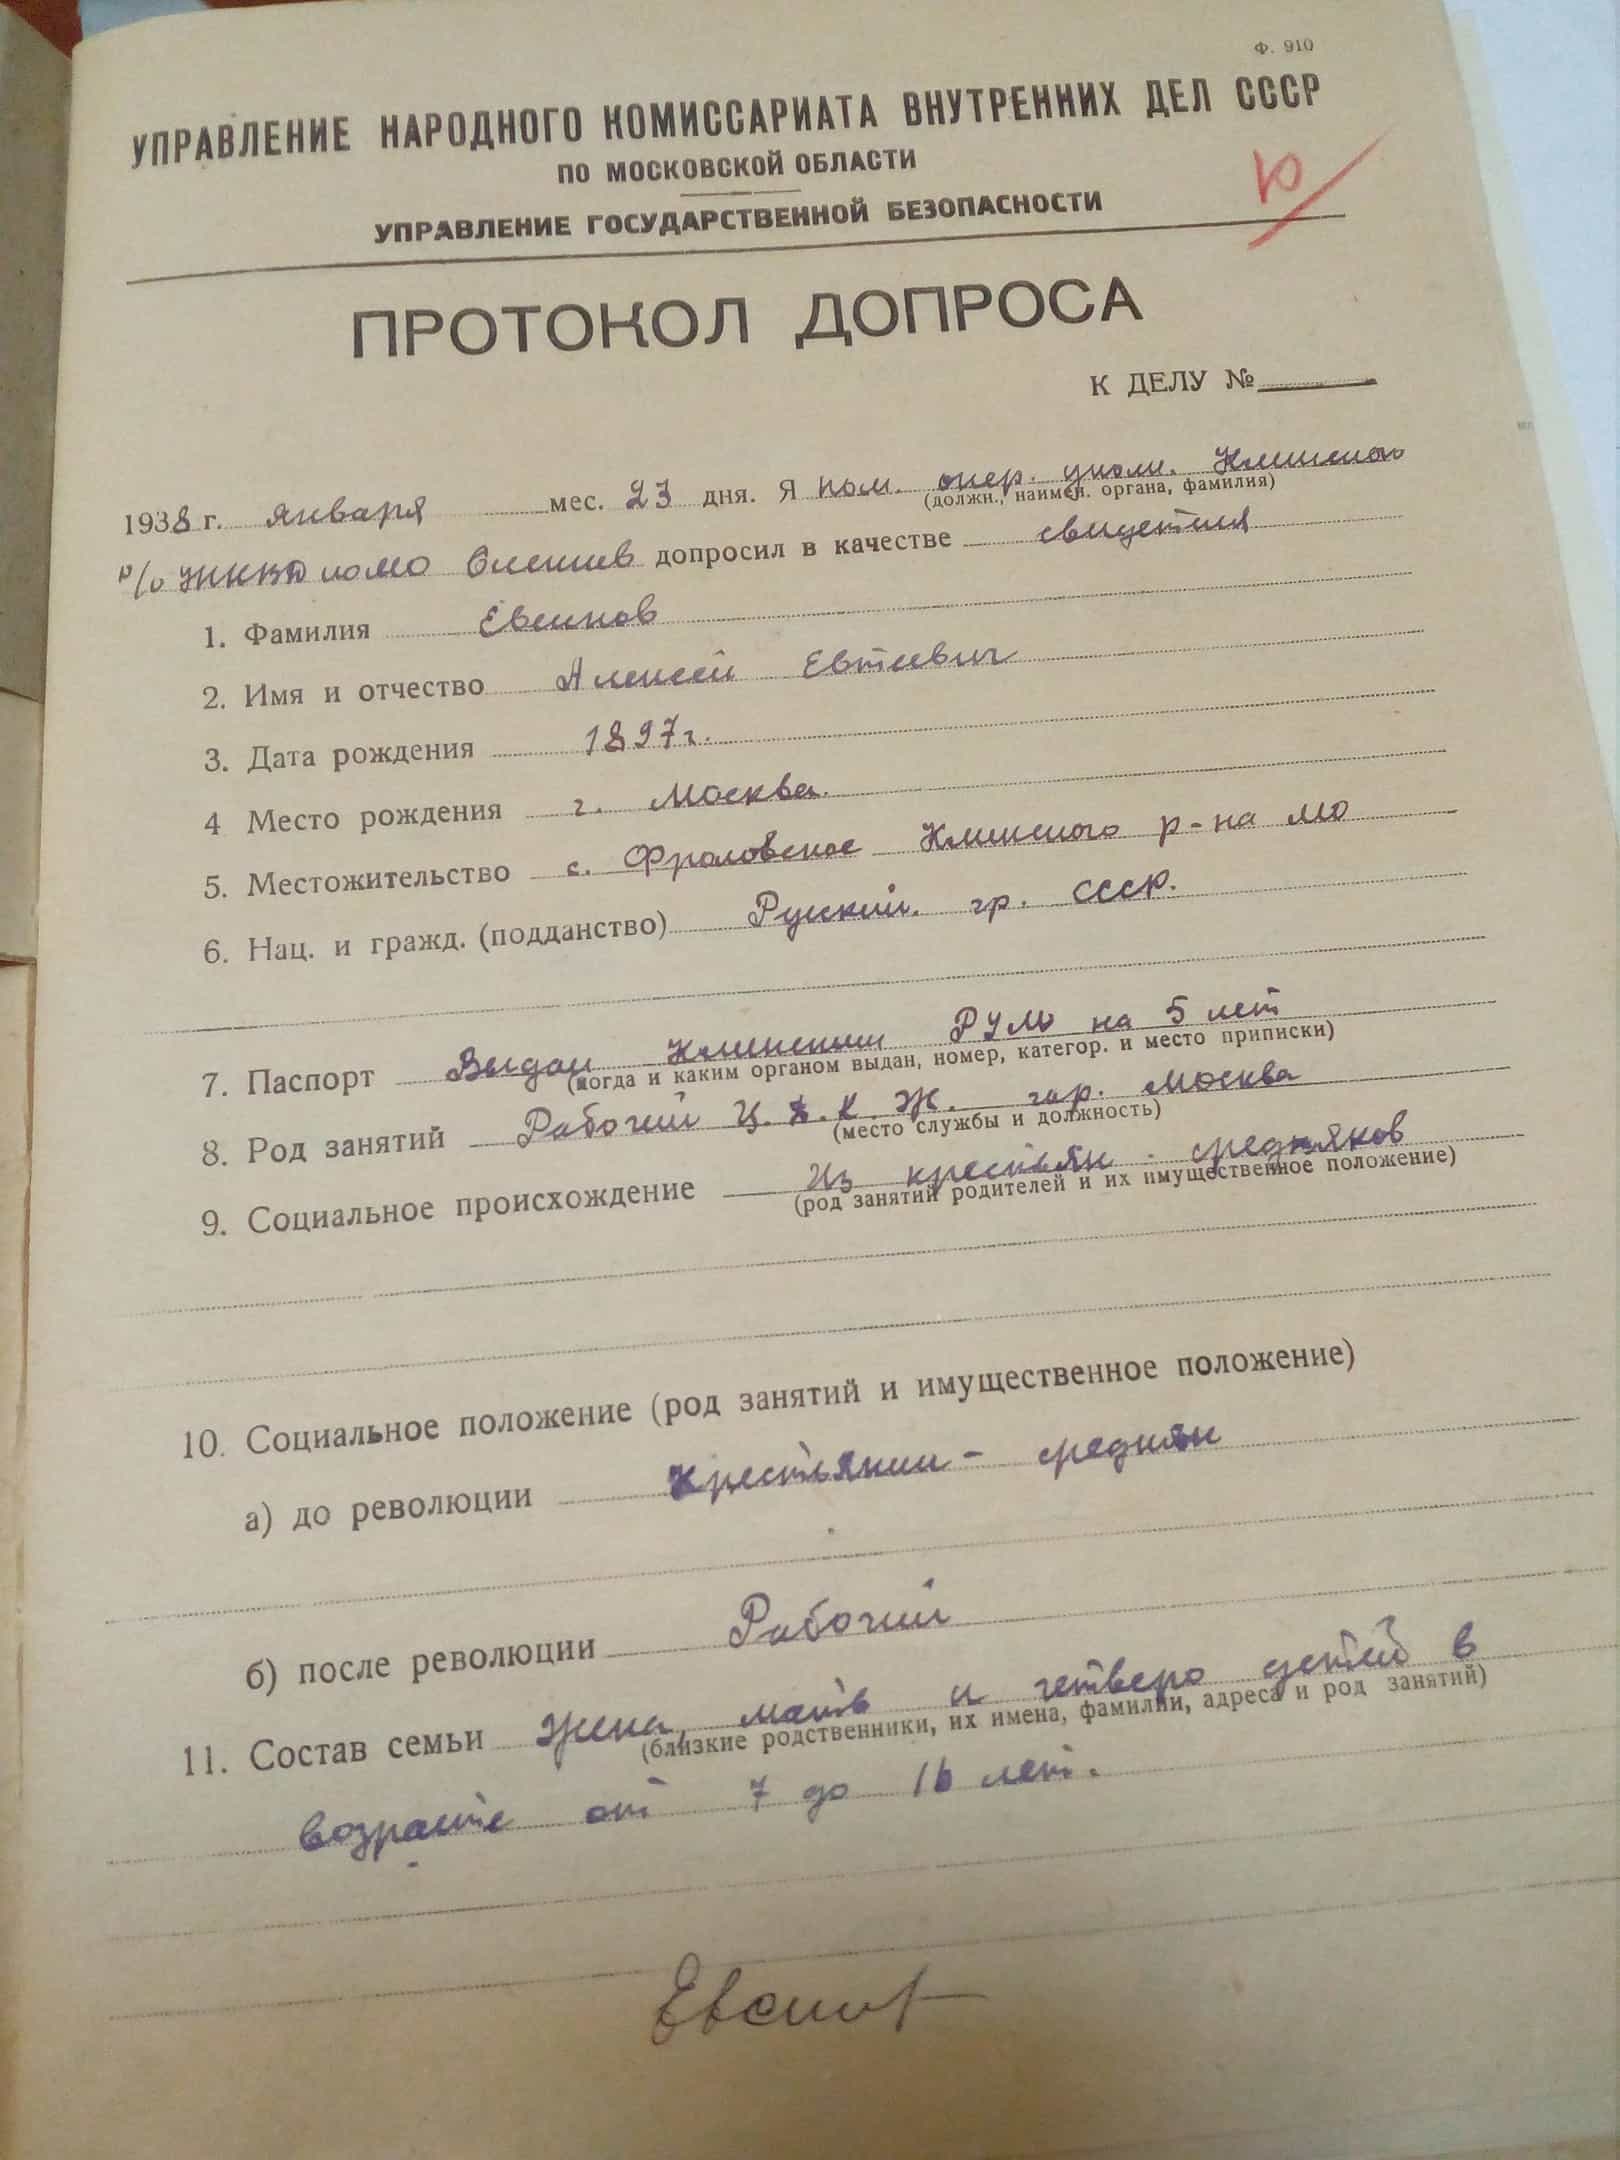 Ф. 910
УПРАВЛЕНИЕ НАРОДНОГО КОМИССАРИАТА ВНУТРЕННИХ ДЕЛ СССР
ПО МОСКОВСКОЙ ОБЛАСТИ
УПРАВЛЕНИЕ ГОСУДАРСТВЕННОЙ БЕЗОПАСНОСТИ
ПРОТОКОЛ ДОПРОСА
К ДЕЛУ №
1938 г. января мес. 23 дня. Я пом. опер. уполн. Клинского
(должн., наимен. органа, фамилия)
р/о НКВД по МО допросил в качестве свидетеля
1. Фамилия
2. Имя и отчество Алексей Евтеевич
3. Дата рождения 1897 г.
4 Место рождения г. Москва.
5. Местожительство с. Фроловское Клинского р-на МО
6. Нац. и гражд. (подданство) Руский. гр. СССР.
7. Паспорт Выдан Клинским РУМ на 5 лет
(когда и каким органом выдан, номер, категор. и место приписки)
8. Род занятий Рабочий гор. Москва
(место службы и должность)
9. Социальное происхождение Из крестьян - средняков
(род занятий родителей и их имущественное положение)
10. Социальное положение (род занятий и имущественное положение)
а) до революции Крестьянин - средняк
б) после революции Рабочий
11. Состав семьи Жена, мать и четверо детей в
(близкие родственники, их имена, фамилии, адреса и род занятий)
возрасте от 7 до 16 лет.